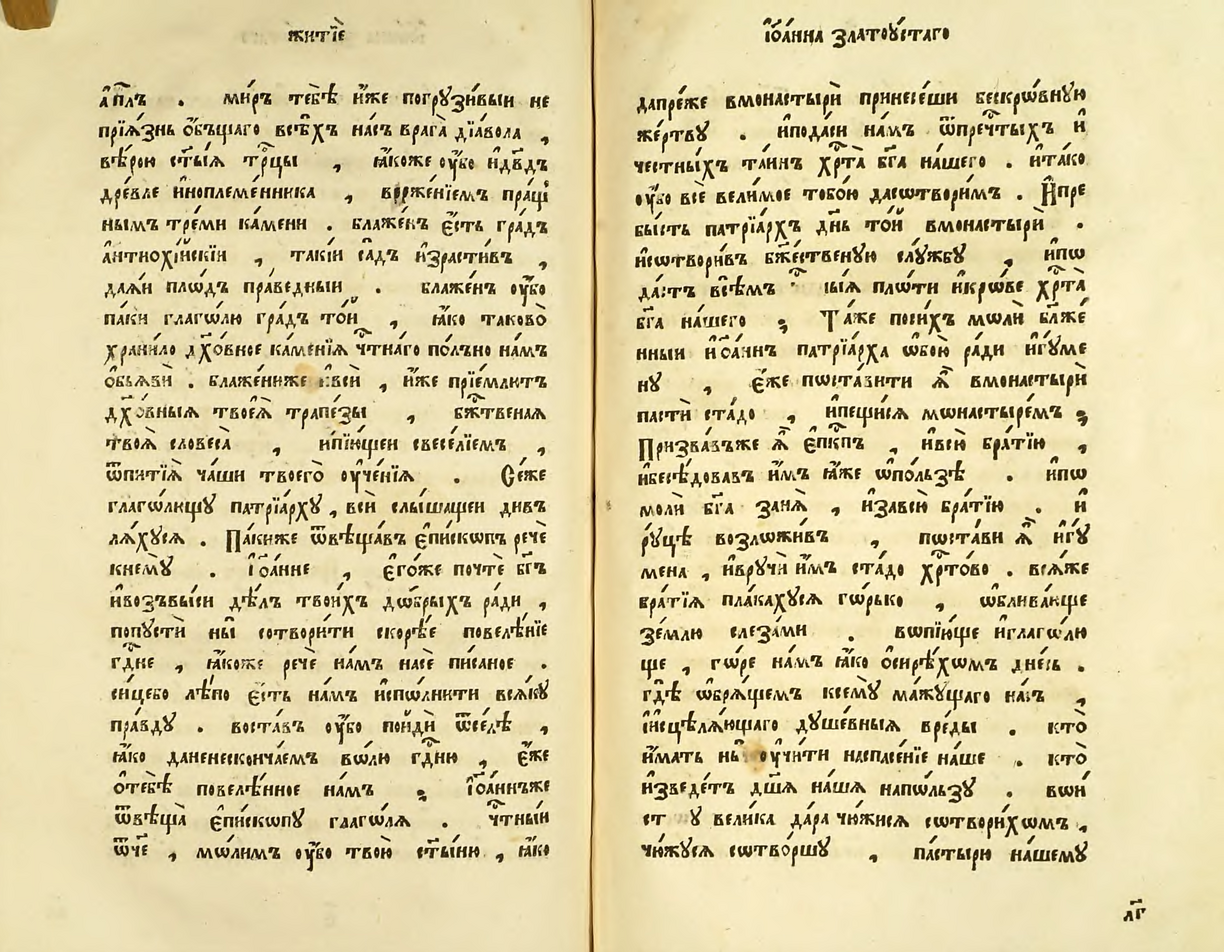 житїѐ
а҆п҃лъ . ми́ръ тебѣ̀ и҆́же погрꙋзи́выи не
прїѧ́знь ѻ҆́бъщаго всѣ́хъ на́съ врага̀ дїа́вола ,
вѣ́рою ст҃ы́ѧ тр҇цы , ꙗ҆́коже ᲂу҆́бо и҆дв҃дъ
дре́вле и҆ноплеме́нника , вр́женїемъ пра́щ
нымъ треми̇ ка́мени . блаже́нъ є҆́сть гра́дъ
а҆нтиохі́искїи , таки́и са́дъ и҆зрасти́въ ,
даѧ́и пло́дъ пра́ведныи . блаже́нъ ᲂу҆́бо
па́ки глаго́лю гра́дъ то́и , ꙗ҆́ко таково̀
храни́ло дх҃о́вное ка́менїѧ чт҇на́го по́лъно на́мъ
ѻ҆бьѧвѝ . блаже́ниже и҆всѝ , и҆́же прїе́млитъ
дх҃о́вныѧ твоеѧ̀ трапе́зы , бж҇твеная
твоѧ̀ словеса̀ , и҆пїю́щеи свесе́лїемъ ,
ѿпитїѧ̀ ча́ши твоего̀ ᲂу҆че́нїѧ . Се́же
глагѡ́лющꙋ патрїа́рхꙋ , всѝ слы́шащеи ди́въ
лѧ́хꙋсѧ . Па́киже ѿвѣща́въ є҆пи́скѡпъ речѐ
кнемꙋ̀ . І҆ѻа́нне , є҆го́же почтѐ бг҃ъ
и҆возъвы́си дѣ́лъ твои́хъ дѡ́брыхъ ра́ди ,
попꙋстѝ ны̀ сотвори́ти скорѣ́е повелѣ́нїе
гд҇не , ꙗ҆́коже речѐ на́мъ насѐ пи́саное .
си́цебо лѣ́по є҆́сть на́мъ и҆спѡ́лнити всѧ́кꙋ
пра́вдꙋ . воста́въ ᲂу҆́бо поидѝ ѿсе́лѣ ,
ꙗ҆́ко даненесконча́емъ вѡ́лю гд҇ню , є҆́же
ѻ҆тебѣ̀ повелѣ́нное на́мъ ; І҆ѻа́ннъже
ѿвѣща̀ є҆пи́скѡпꙋ глаго́лѧ . чт҇ны́и
ѿ҆че , мѡ́лимъ ᲂу҆́бо твою̀ ст҃ы́ню , ꙗ҆́ко
і҆ѻа́нна златоꙋ́стаго
дапре́же вмонастырѝ принесе́ши бескро́внꙋю
же́ртвꙋ . и҆пода́си на́мъ ѿпречⷭ҇тыхъ и҆
че́стныхъ та́инъ хр҇та̀ бг҃а на́шего . и҆та́ко
ᲂу҆́бо всѐ вели́мое тобо́ю дасѡтвори́мъ . И҆пре
бы́сть патрїа́рхъ дн҃ь то́и вмонастырѝ .
и҆сѡтвори́въ бж҇е́ственꙋю слꙋ́жбꙋ , и҆пѡ
да́стъ всѣ́мъ плѡ́ти и҆кро́ве хр҇та̀
бг҃а на́шего ; Та́же поси́хъ мѡлѝ бл҃же́
нныи и҆ѻа́ннъ патрїа́рха ѡ҆бою̀ ра́ди и҆гꙋ́ме
нꙋ , є҆́же пѡста́вити ѧ҆̀ вмонастырѝ
пастѝ ста́до , и҆пещи́сѧ мѡнастыре́мъ ;
Призва́въже ѧ҆̀ є҆пи҇кпъ , и҆всю̀ бра́тїю ,
и҆бесѣ́довавъ и҆́мъ ꙗ҆́же ѡ҆по́льзѣ . и҆пѡ
молѝ бг҃а занѧ̀ , и҆завсю̀ бра́тїю . и҆
рꙋ́цѣ возлѡжи́въ , пѡста́ви ѧ҆̀ и҆гꙋ́
мена , и҆врꙋчѝ и҆́мъ ста́до хр҇то́во . всѧ́же
бра́тїѧ пла́кахꙋсѧ гѡ́рько , ѡ҆блива́юще
зе́млю слеза́ми . вѡпїю́ще и҆глагѡ́лю
ще , гѡ́ре на́мъ ꙗ҆́ко ѻ҆сирѣ́хѡмъ дне́сь .
гдѣ̀ ѡ҆брѧ́щемъ ксемꙋ̀ ма́жꙋщаго на́съ ,
і҆исцѣлѧ́ющаго дꙋше́вныѧ вре́ды . кто̀
и҆́мать ны̀ ᲂу҆чи́ти наспасе́нїе на́ше . кто̀
и҆зведе́тъ дш҃ѧ на́шѧ напѡ́льзꙋ . вѡи́
ст у вели́ка да́ра чю́жисѧ сѡтвори́хѡмъ ,
чю́жꙋсѧ сѡтво́ршꙋ , па́стырю на́шемꙋ
л҃г